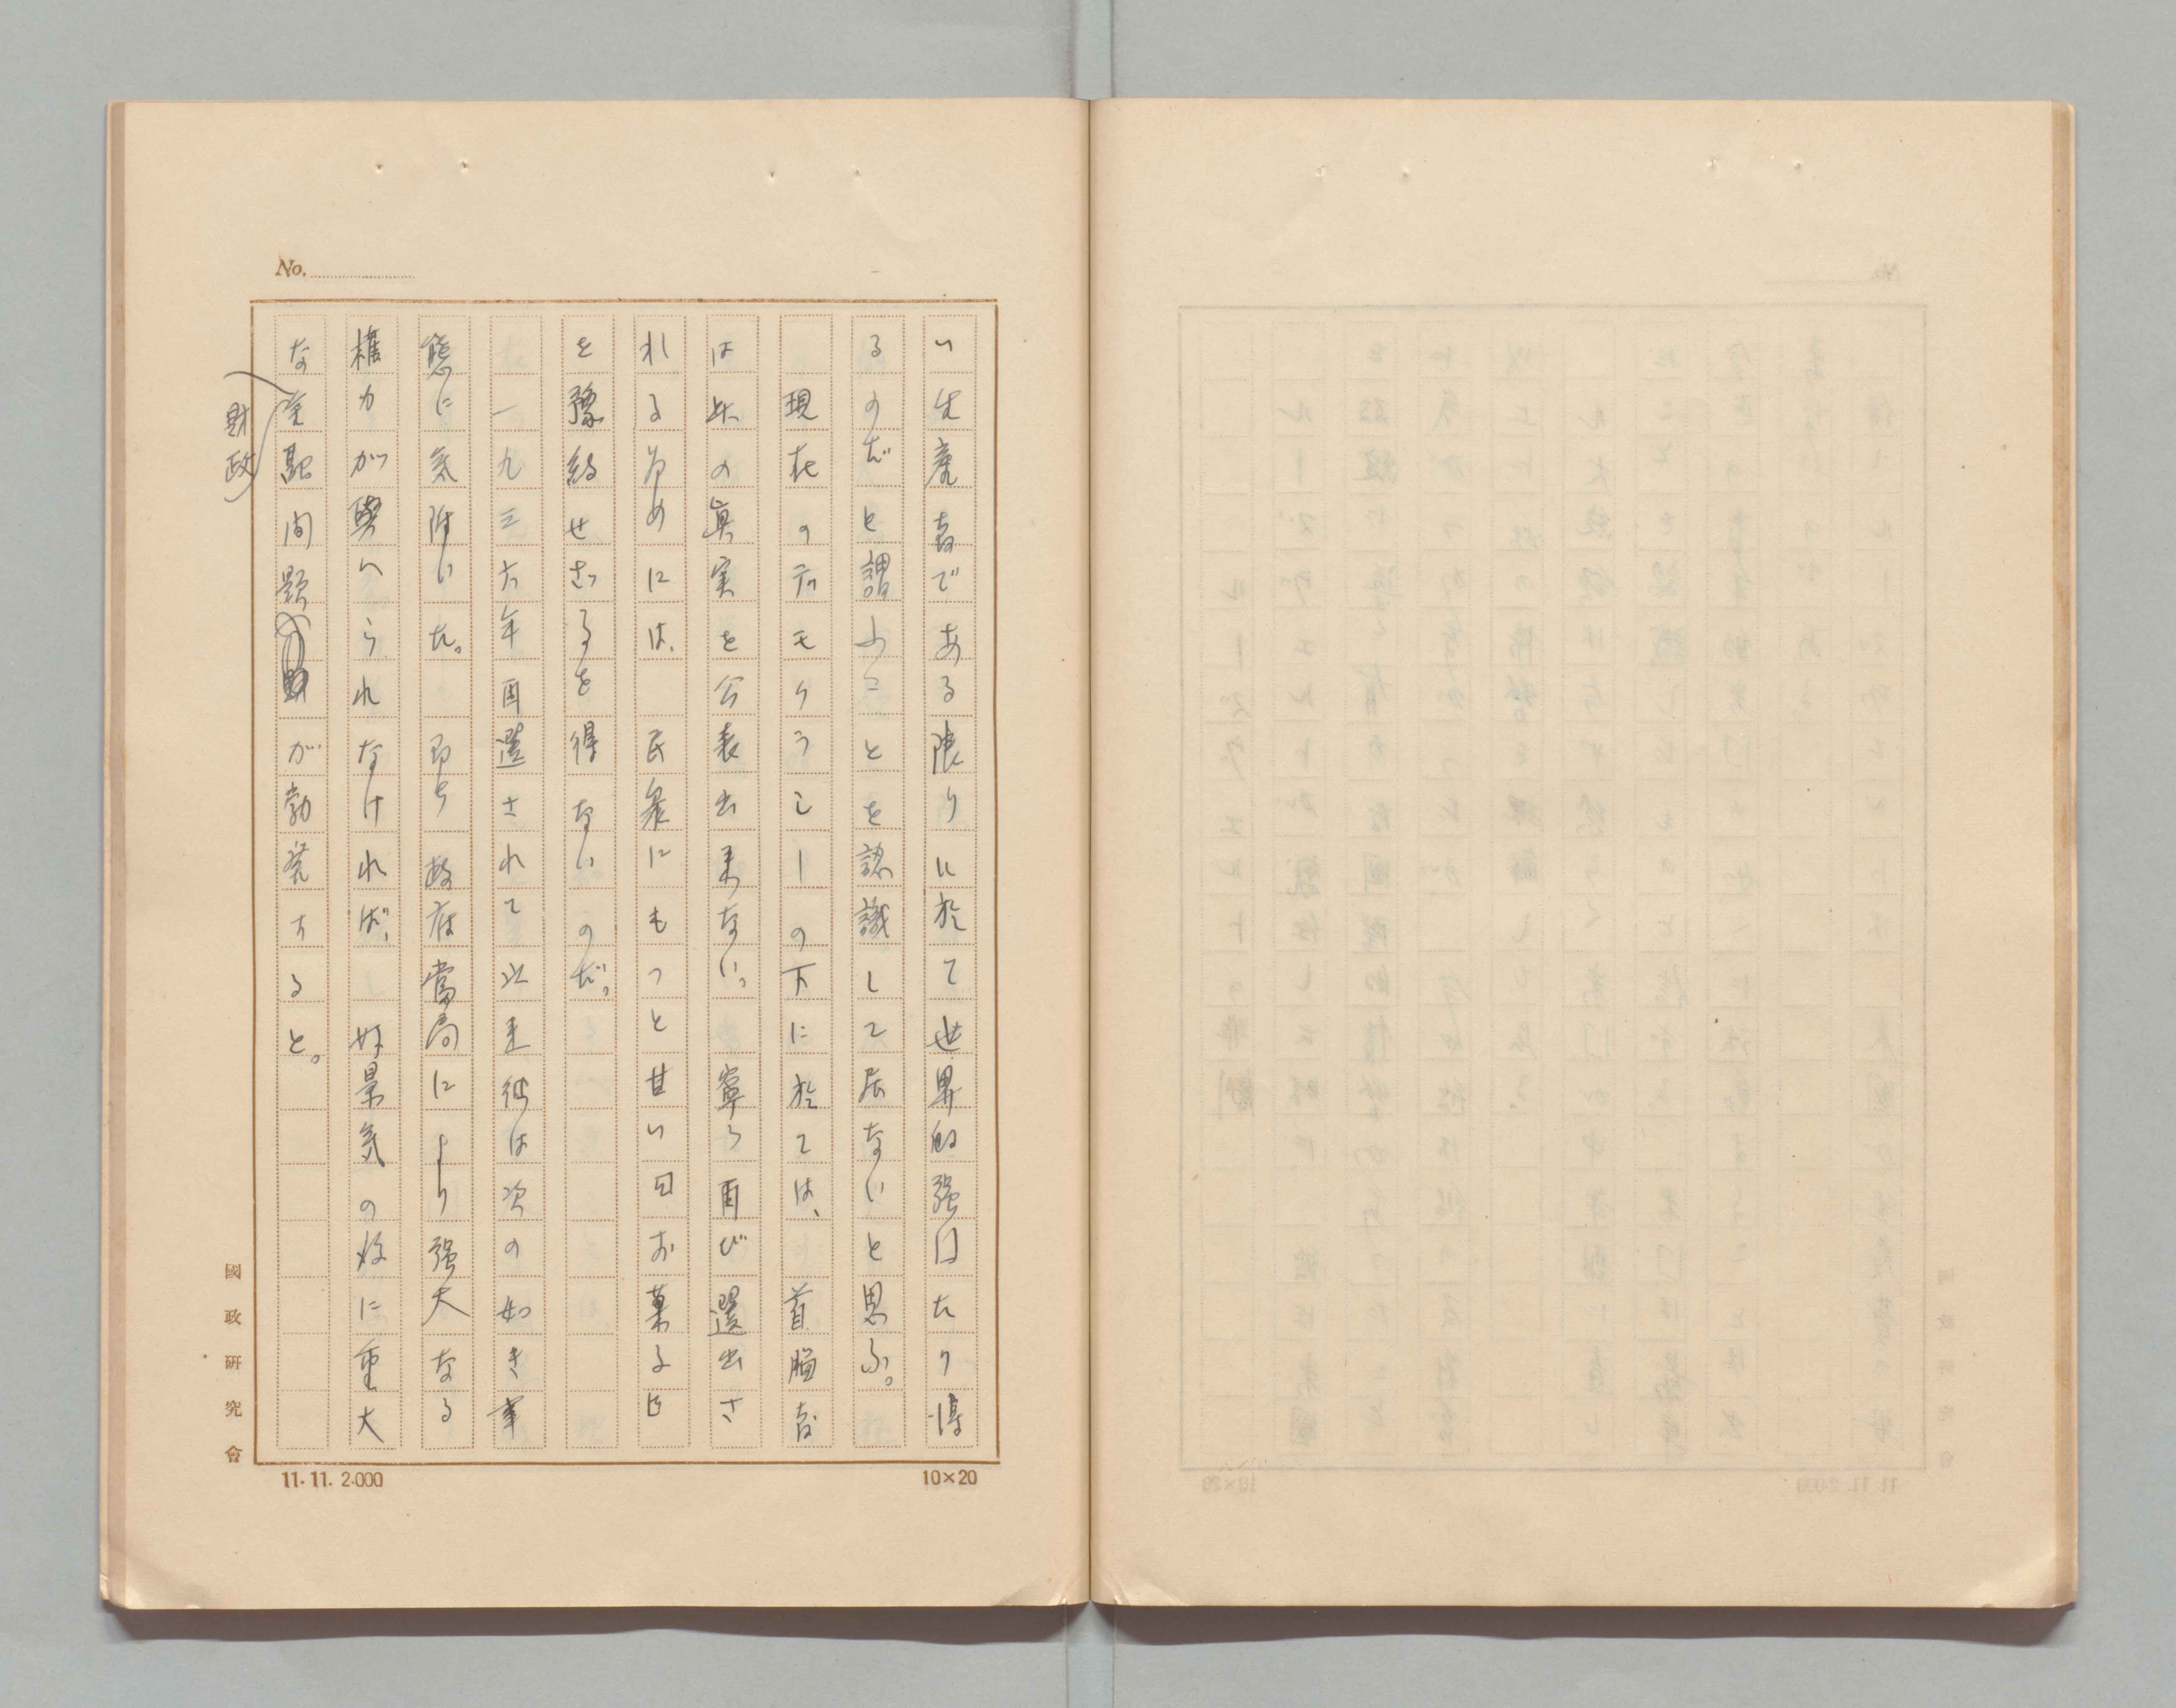 No.
い生産者である限りに於て世界的強国たり得
るのだと謂ふことを認識して居ないと思ふ。
現在のデモクラシーの下に於ては、首脳者
は此の眞実を公表出来ない。寧ろ再び選出さ
れる為めには、民衆にもつと甘い日お菓子
を豫約せざるを得ないのだ。
一九三六年再選されて以来彼は次の如き事
態に気附いた。即ち政府當局により强大なる
權力が與へられなければ、好景気の後に重大
な金融問題が勃発すると。
財政
國政研究會
11.11.2.000
10×20